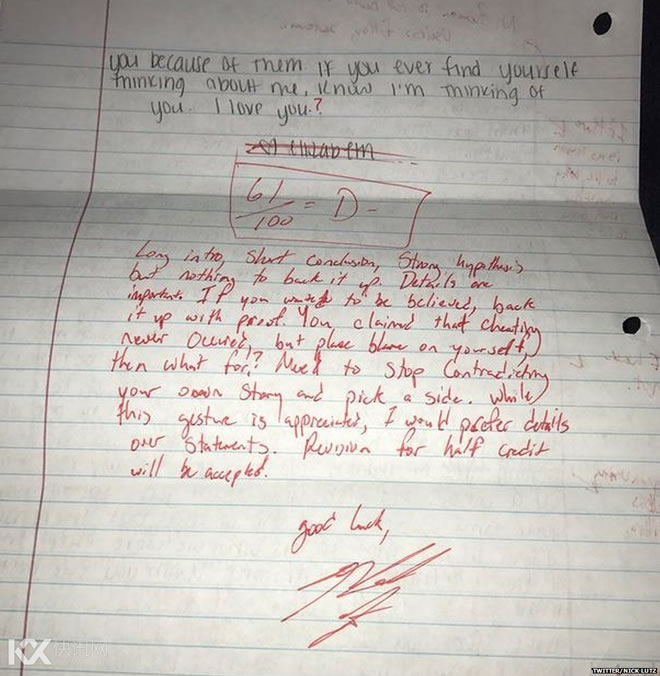 you because of them if you ever find yourself
thinking about me, know I'm thinking of
you. I love you.?
61/100 = D-
Long intro, Short conclusion, Strong hypothesis
but nothing to back it up. Details are
important. If you want to be believed, back
it up with proof. You claimed that cheating
never occured, but place blame on yourself,
then what for!? Need to stop contradicting
your own story and pick a side. While
this gesture is appreciated, I would prefer details
over statements. Revision for half credit
will be accepted.
good luck,
KX 快讯网
TWITTER/NICK LUTZ